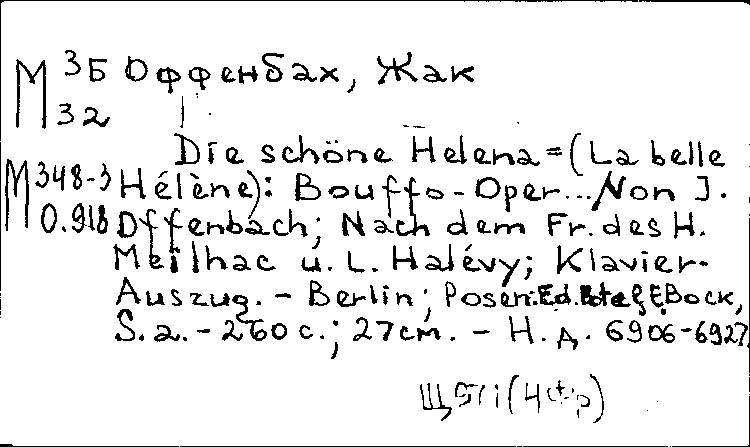 М 3Б Оффенбах, Жак
32
Die schöne Helena = (La belle
М 348-3 Hélène): Bouffo-Oper... Von J.
0.918 Offenbach; Nach dem Fr. des H.
Meilhac u. L. Halévy; Klavier-
Auszug. - Berlin; Posen: Ed. Bote & G. Bock,
S. a. - 260 с.; 27 см. - Н. д. 6906-6927.